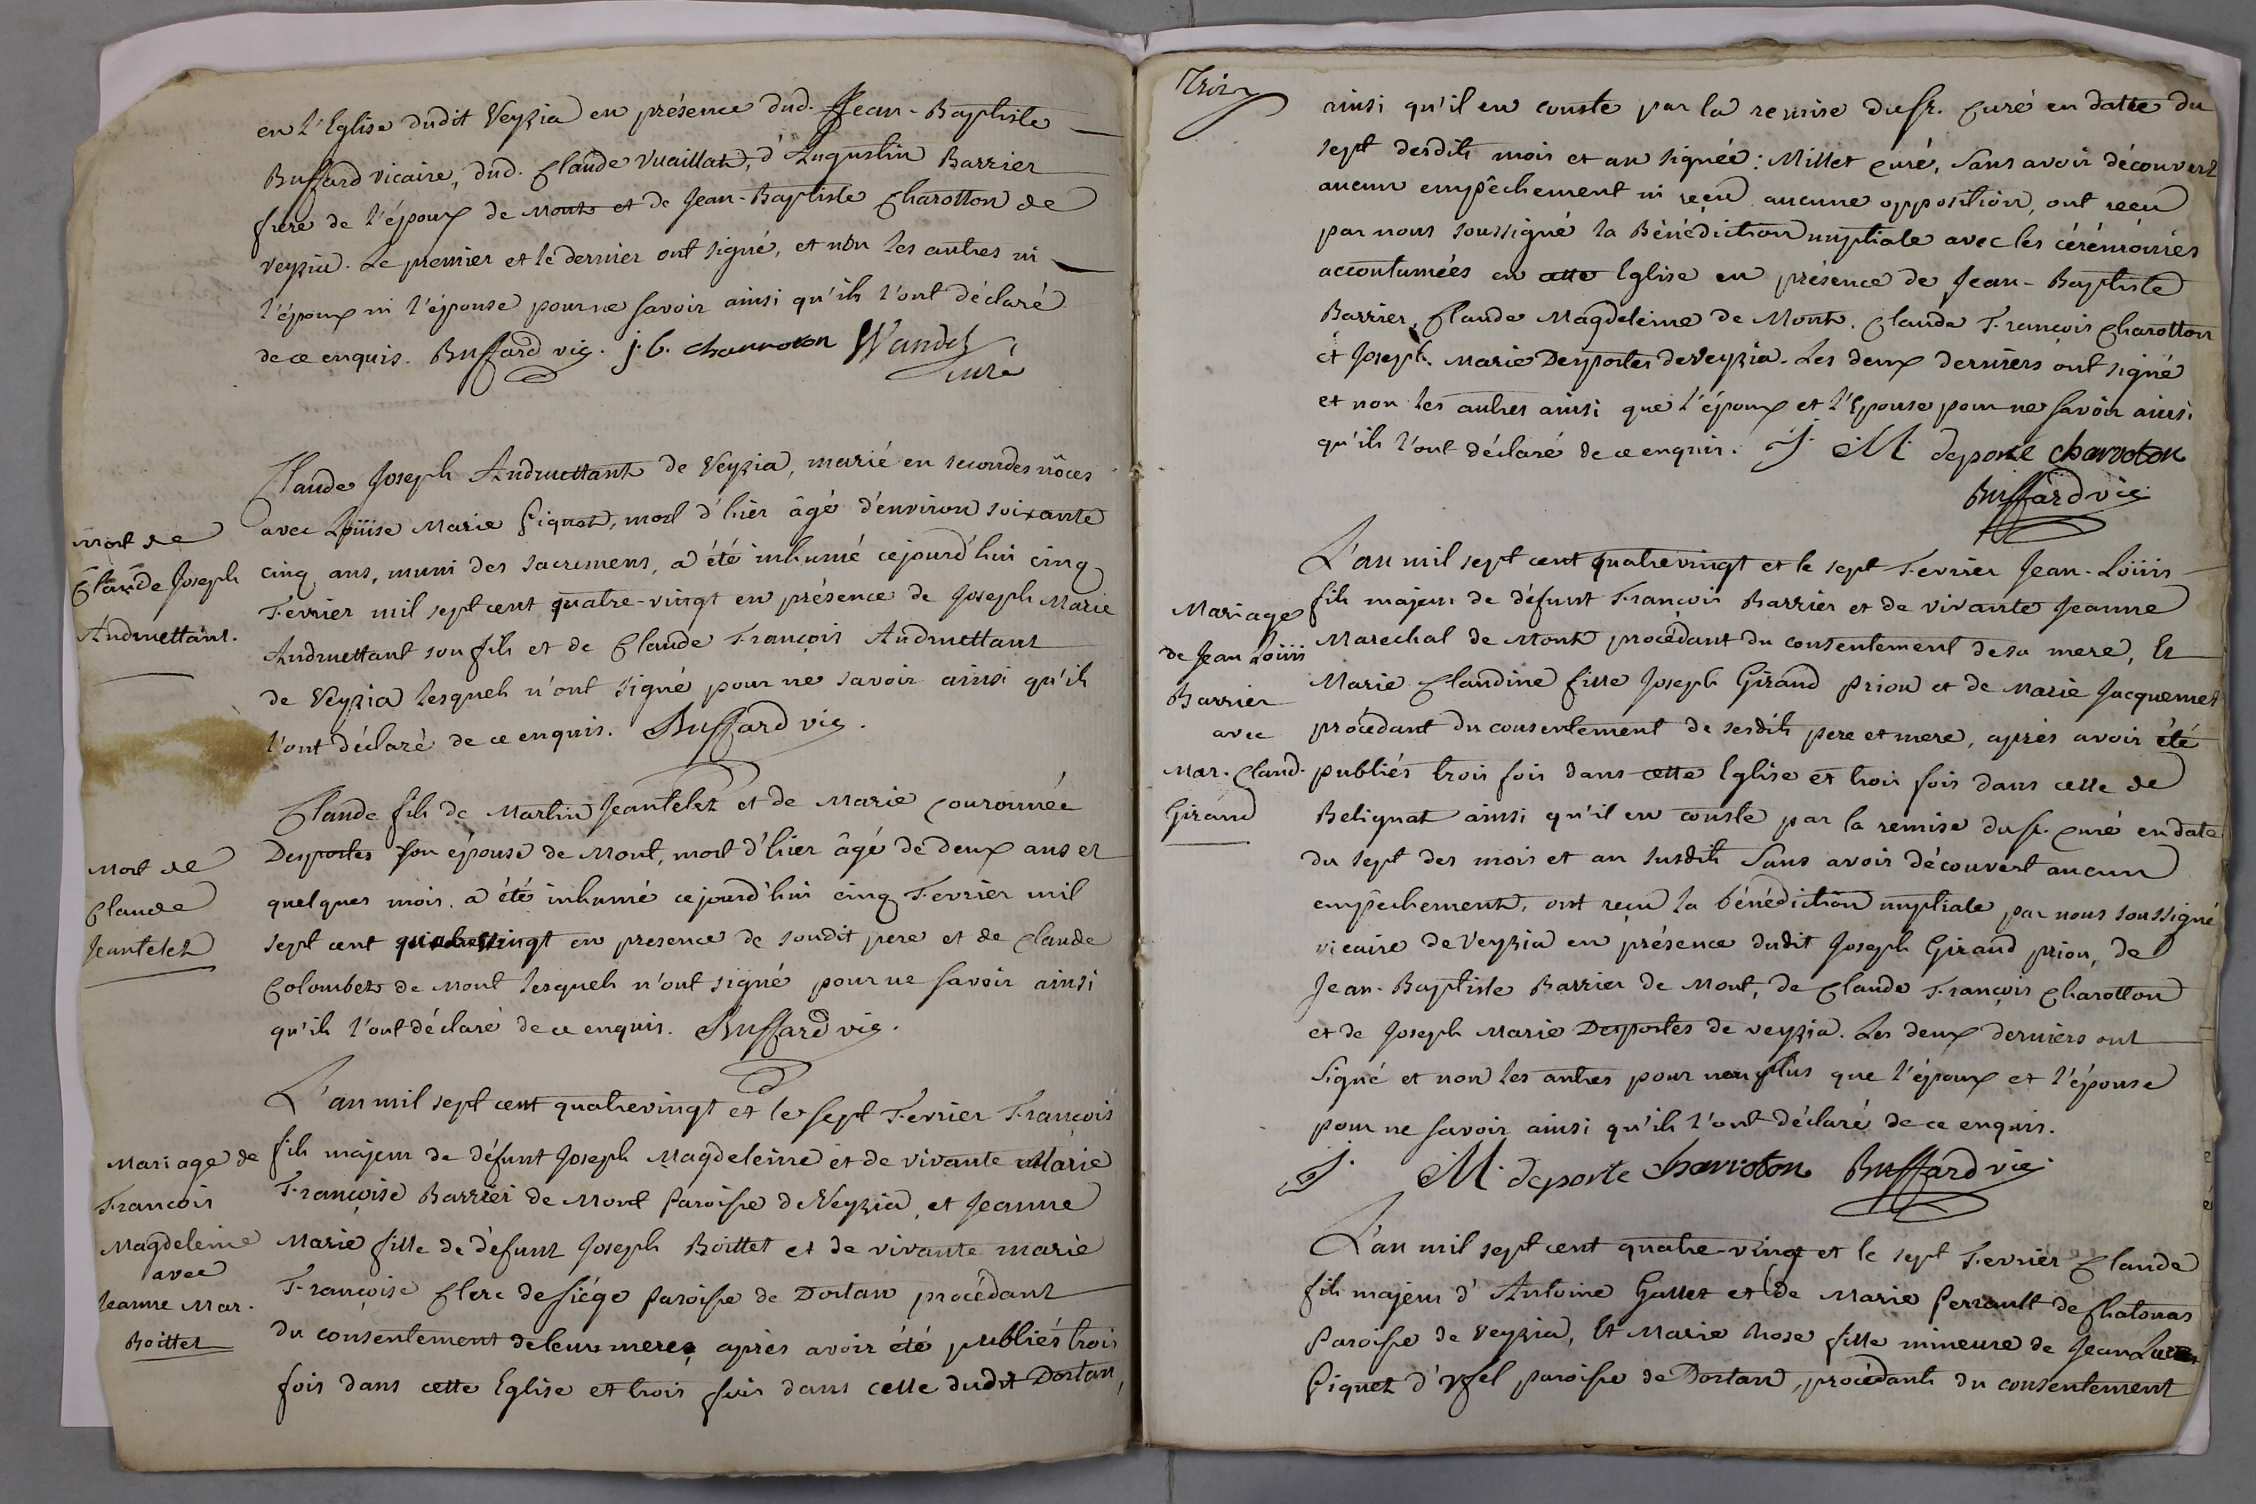 en l'Eglise dudit Veyzia en présence dud. Jean-Baptiste
Buffard vicaire, dud. Claude Vuaillat, d'Augustin Barrier
frere de l'époux de Mont et de Jean-Baptiste Charotton de
Veyzia. Le premier et le dernier ont signé, et non les autres ni
l'époux ni l'épouse pour ne savoir ainsi qu'ils l'ont déclaré
de ce enquis. Buffard vic. j. b. charroton
curé
Mort de
Claude Joseph
Andruettant.
Claude Joseph Andruettant de Veyzia, marié en secondes nôces
avec Loüise Marie Piquet, mort d'hier âgé d'environ soixante
cinq ans, muni des sacremens, a été inhumé cejourd'hui cinq
Fevrier mil sept cent quatre-vingt en présence de Joseph Marie
Andruettant son fils et de Claude François Andruettant
de Veyzia lesquels n'ont signé pour ne savoir ainsi qu'ils
l'ont déclaré de ce enquis. Buffard vic.
Mort de
Claude
Jeantelet
Claude fils de Martin Jeantelet et de Marie Couronnée
Desportes son épouse de Mont, mort d'hier âgé de deux ans et
quelques mois. a été inhumé cejourd'hui cinq Fevrier mil
sept cent quatrevingt en presence de soudit pere et de Claude
Colombet de Mont lesquels n'ont signé pour ne savoir ainsi
qu'ils l'ont déclaré de ce enquis. Buffard vic.
Mariage de
François
Magdeleine
avec
Jeanne Mar.
Boittet
L'an mil sept cent quatrevingt et le sept Fevrier François
fils majeur de défunt Joseph Magdeleine et de vivante Marie
Françoise Barrier de Mont Paroisse de Veyzia, et Jeanne
Marie fille de défunt Joseph Boittet et de vivante marie
Françoise Clerc de Siége Paroisse de Dortan procédant
du consentement de leurs meres, après avoir été publiés trois
fois dans cette Eglise et trois fois dans celle dudit Dortan,
Trois
ainsi qu'il en conste par la remise du Sr. Curé en datte du
sept desdits mois et an signée: Millet curé, Sans avoir découvert
aucun empêchement ni reçu aucune opposition, ont reçu
par nous soussigné la Bénédiction nuptiale avec les cérémonies
accoutumées en cette Eglise en présence de Jean-Baptiste
Barrier, Claude Magdeleine de Mont. Claude François Charotton
et Joseph Marie Desportes de Veyzia. Les deux derniers ont signé
et non les autres ainsi que l'époux et l'Epouse pour ne savoir ainsi
qu'ils l'ont déclaré de ce enquis. J. M. deporte charroton
Buffard vic.
Mariage
de Jean Loüis
Barrier
avec
Mar. Claud.
Girand
L'an mil sept cent quatrevingt et le sept Fevrier Jean-Loüis
fils majeur de défunt François Barrier et de vivante Jeanne
Marechal de Mont procédant du consentement de sa mere, Et
Marie Claudine fille Joseph Girand Prion et de Marie Jacquemet
procédant du consentement de sesdits pere et mere, après avoir été
publiés trois fois dans cette Eglise et trois fois dans celle de
Belignat ainsi qu'il en conste par la remise du Sr. Curé en date
du sept des mois et an susdits Sans avoir découvert aucun
empêchement, ont reçu la bénédiction nuptiale par nous soussigné
vicaire de Veyzia en présence dudit Joseph Girand prion, de
Jean-Baptiste Barrier de Mont, de Claude François Charotton
et de Joseph Marie Desportes de veyzia. Les deux derniers ont
Signé et non les autres pour non plus que l'époux et l'épouse
pour ne savoir ainsi qu'ils l'ont déclaré de ce enquis.
J. M. deporte charroton Buffard vic.
L'an mil sept cent quatre-vingt et le sept Fevrier Claude
fils majeur d'Antoine Gallet et de Marie Perrault de Chatonas
Paroisse de Veyzia, Et Marie Rose fille mineure de Jean
Piquet d'Uffel paroisse de Dortan, procédants du consentement